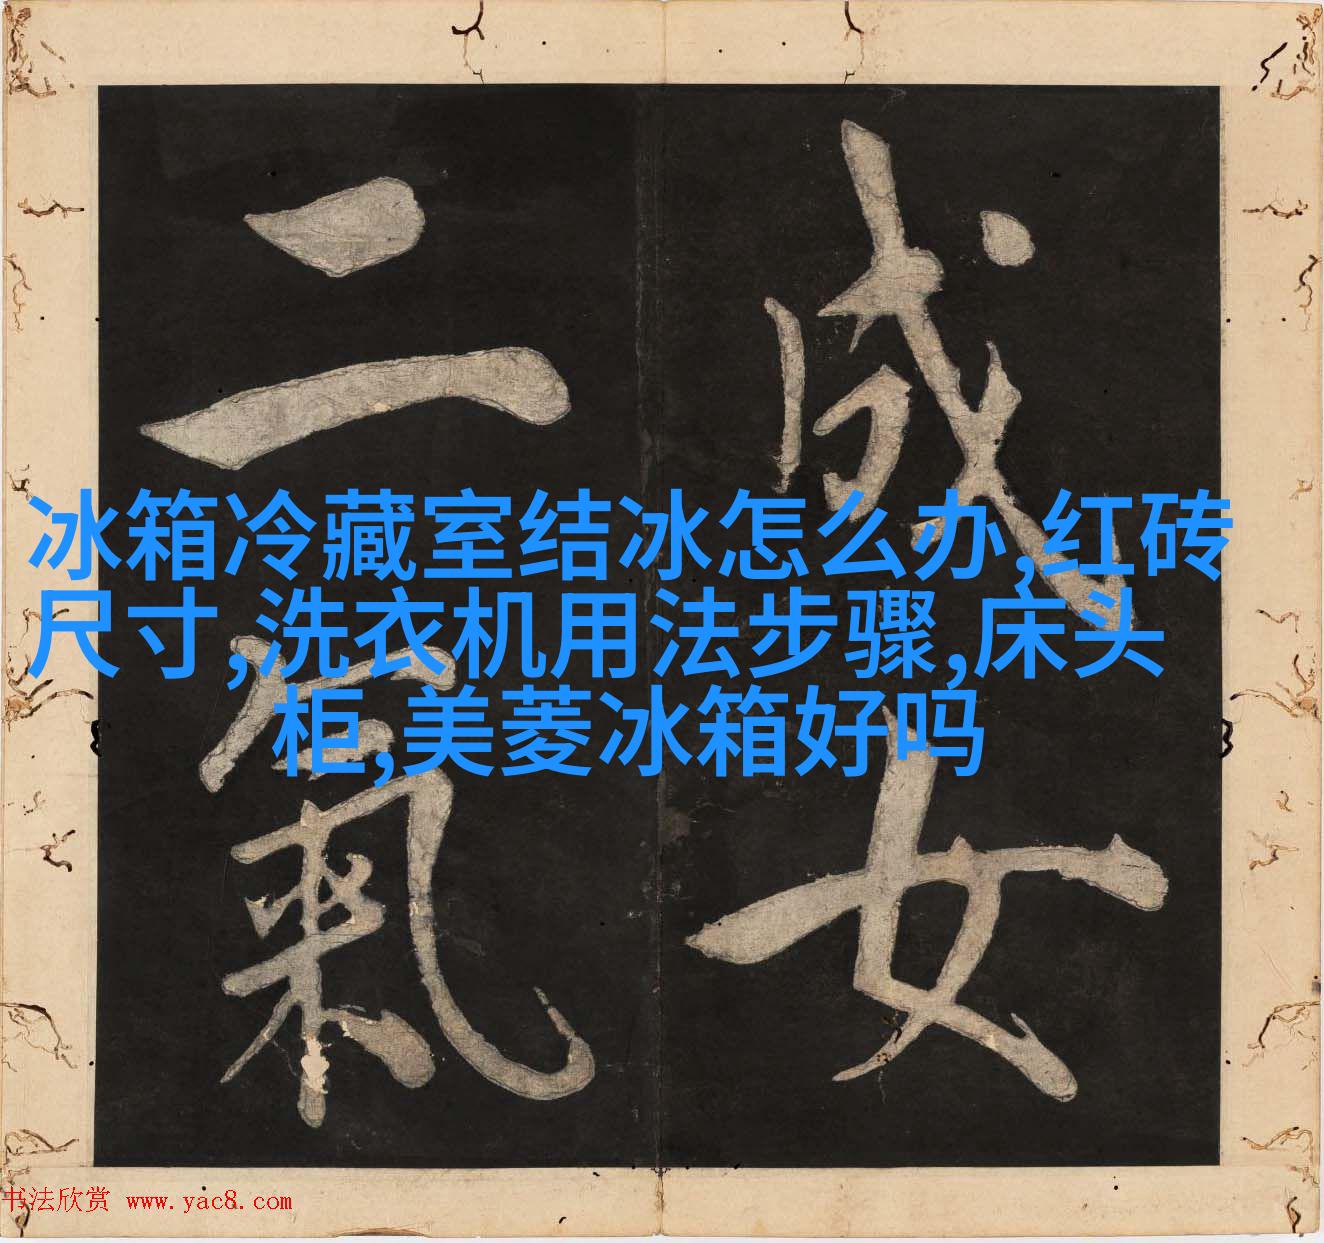 成女
二氣
冰箱冷藏室结冰怎么办,红砖
尺寸,洗衣机用法步骤,床头
柜,美菱冰箱好吗
书法欣赏 www.yac8.com